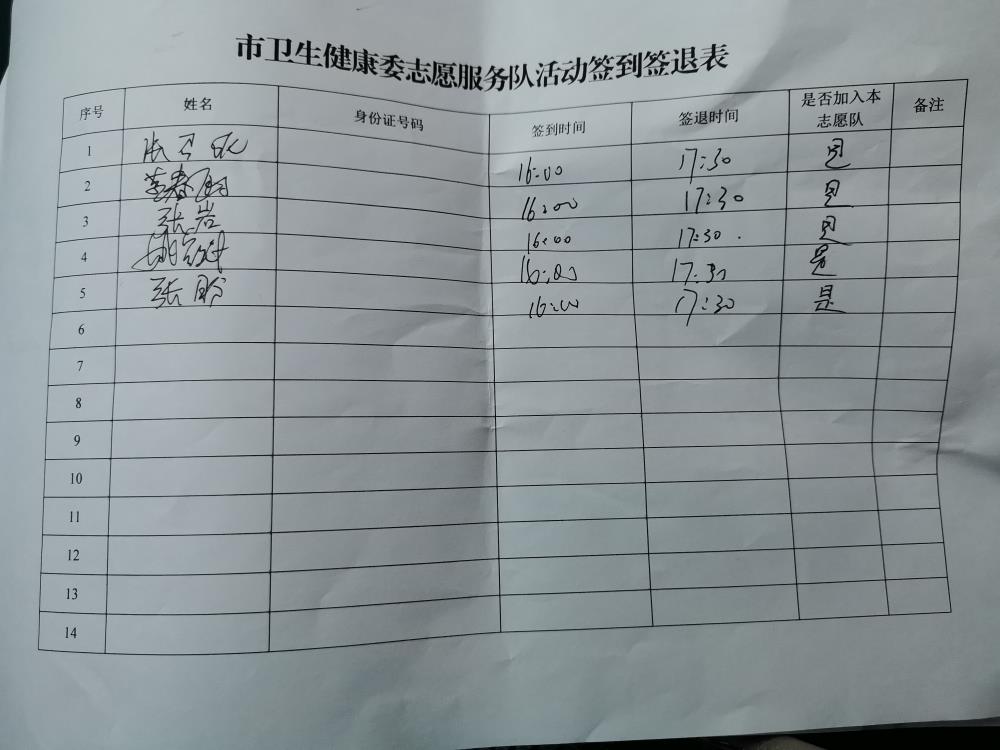 市卫生健康委志愿服务队活动签到签退表
序号 姓名 身份证号码 签到时间 签退时间 是否加入本志愿队 备注
1 16:00 17:30 是
2 16:00 17:30 是
3 张岩 16:00 17:30 是
4 16:00 17:30 是
5 张盼 16:00 17:30 是
6
7
8
9
10
11
12
13
14